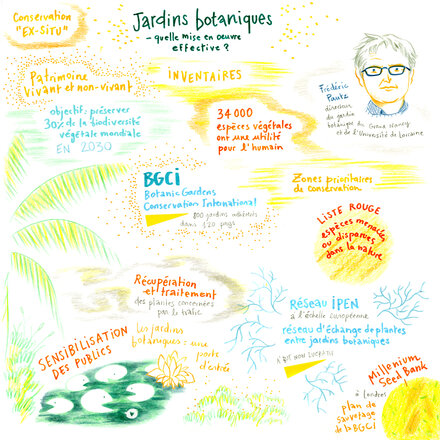 Conservation
"EX-SITU"
Jardins botaniques
- quelle mise en oeuvre
effective ?
Patrimoine
vivant et non-vivant
INVENTAIRES
objectif: préserver
30% de la biodiversité
végétale mondiale
EN 2030
34 000
espèces végétales
ont une utilité
pour l'humain
Frédéric
Pautz
directeur
du jardin
botanique du Grand Nancy
et de l'Université de Lorraine
BGCi
Botanic Gardens
Conservation International
800 jardins adhérents
dans 120 pays
Zones prioritaires
de conservation
LISTE ROUGE
espèces menacées
ou disparues
dans la nature
Récupération
et traitement
des plantes concernées
par le trafic
Réseau IPEN
à l'échelle européenne
réseau d'échange de plantes
entre jardins botaniques
à but non lucratif
SENSIBILISATION
DES PUBLICS
Les jardins
botaniques : une
porte
d'entrée
Millenium
Seed Bank
à Londres
plan de
sauvetage
de la BGCI